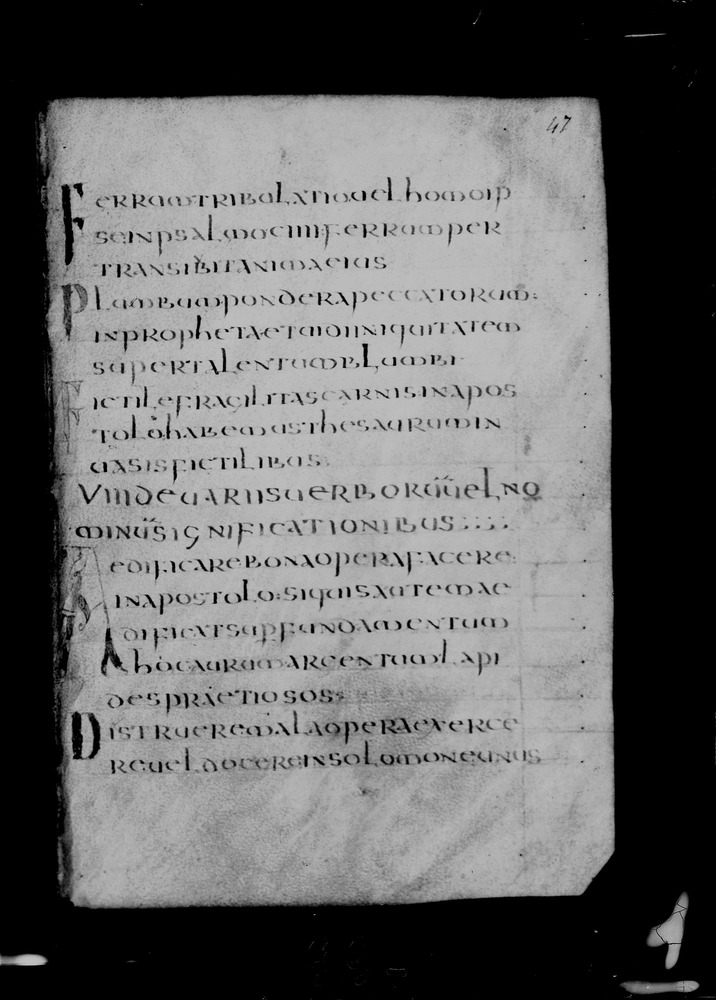 47
FERRUMTRIBULATIOUELHOMOIP
SEINPSALMOCIIIIFERRUMPER
TRANSIBITANIMAEIUS
PLUMBUMPONDERAPECCATORUM:
INPROPHETAETUIDIINIQUITATEM
SUPERTALENTUMBLUMBI
FICTILEFRAGILITASCARNISINAPOS
TOLOHABEMUSTHESAURUMIN
UASISFICTILIBUS
VIIIDEUARIISUERBORŪŪELNO
MINŪSIGNIFICATIONIBUS::::
AEDIFICAREBONAOPERAFACERE
INAPOSTOLO:SIQUISAUTEMAE
DIFICATSUPFUNDAMENTUM
HOCAURUMARGENTUMLAPI
DESPRAETIOSOS:
DISTRUEREMALAOPERAEXERCE
REUELDOCEREINSOLOMONEUNUS